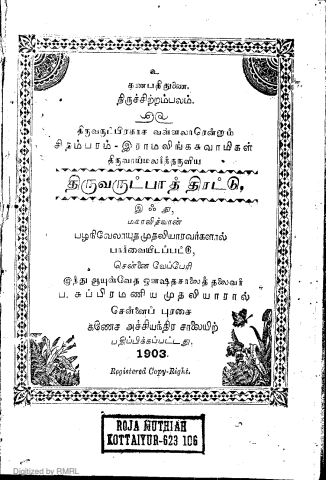 உ
கணபதிதுணை.
திருச்சிற்றம்பலம்.
திருவருட்பிரகாச வள்ளலாரென்னும்
சிதம்பரம்-இராமலிங்கசுவாமிகள்
திருவாய்மலர்ந்தருளிய
திருவருட்பாத் திரட்டு,
இஃது,
மகாவித்வான்
பழநிவேலாயுதமுதலியாரவர்களால்
பார்வையிடப்பட்டு,
சென்னை வேப்பேரி
முந்து ஆயுள்வேத ஔஷதசாலைத் தலைவர்
ப. சுப்பிரமணிய முதலியாரால்
சென்னைப் புரசை
கணேச அச்சியந்திர சாலையிற்
பதிப்பிக்கப்பட்டது,
1903.
Registered Copy-Right.
ROJA MUTHIAH
KOTTAIYUR-623 106
Digitized by RMRL